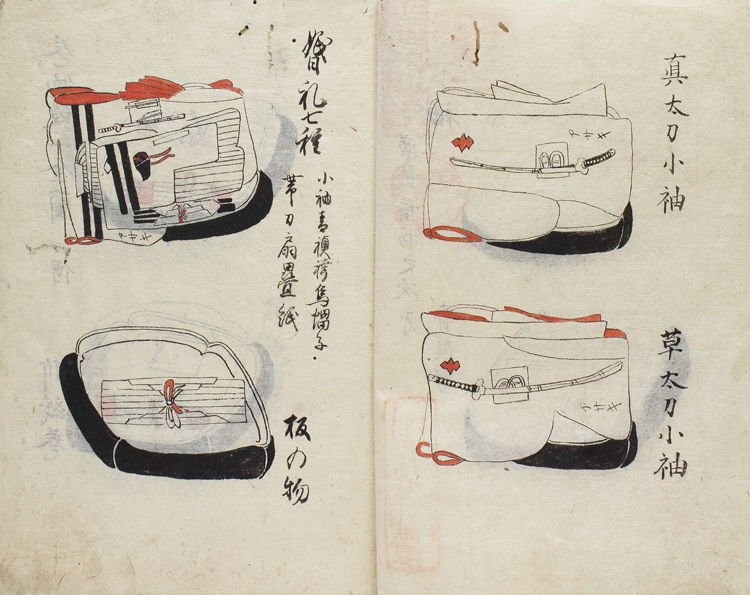 真太刀小袖
草太刀小袖
婚礼七種
小袖青襖袴烏帽子・
帯刀扇畳紙
板の物